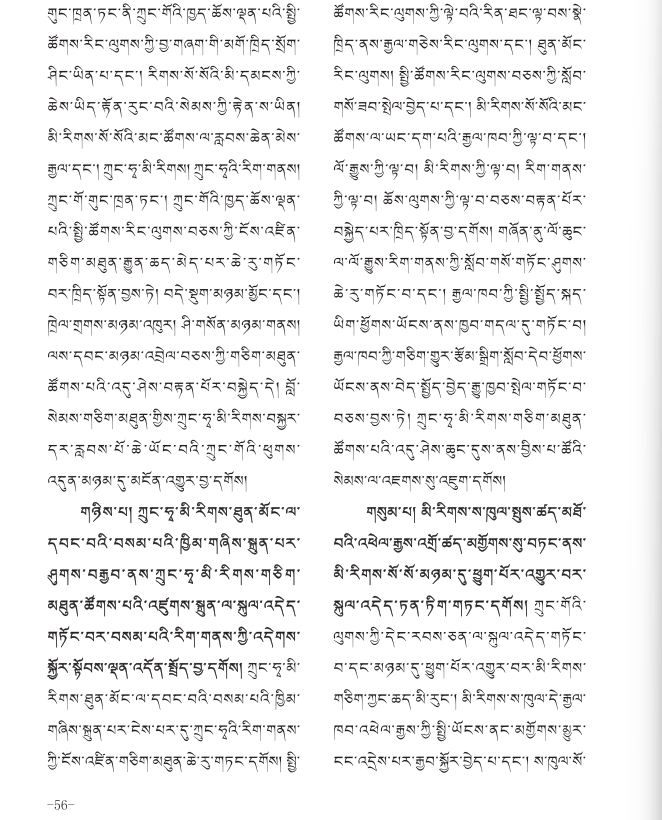 གུང་ཁྲན་ཏང་ནི་ཀྲུང་གོའི་ཁྱད་ཆོས་ལྡན་པའི་སྤྱི་
ཚོགས་རིང་ལུགས་ཀྱི་བྱ་གཞག་གི་མགོ་ཁྲིད་སྲོག་
ཤིང་ཡིན་པ་དང་། རིགས་སོ་སོའི་མི་དམངས་ཀྱི་
ཆེས་ཡིད་རྟོན་རུང་བའི་སེམས་ཀྱི་རྟེན་ས་ཡིན།
མི་རིགས་སོ་སོའི་མང་ཚོགས་ལ་རླབས་ཆེན་མེས་
རྒྱལ་དང་། ཀྲུང་ཧྭ་མི་རིགས། ཀྲུང་ཧྭའི་རིག་གནས།
ཀྲུང་གོ་གུང་ཁྲན་ཏང་། ཀྲུང་གོའི་ཁྱད་ཆོས་ལྡན་
པའི་སྤྱི་ཚོགས་རིང་ལུགས་བཅས་ཀྱི་ངོས་འཛིན་
གཅིག་མཐུན་རྒྱུན་ཆད་མེད་པར་ཆེ་རུ་གཏོང་
བར་ཁྲིད་སྟོན་བྱས་ཏེ། བདེ་སྡུག་མཉམ་མྱོང་དང་།
ཁྲེལ་གྲགས་མཉམ་འཁུར། ཤི་གསོན་མཉམ་གནས།
ལས་དབང་མཉམ་འབྲེལ་བཅས་ཀྱི་གཅིག་མཐུན་
ཚོགས་པའི་འདུ་ཤེས་བརྟན་པོར་བསྐྱེད་དེ། བློ་
སེམས་གཅིག་མཐུན་གྱིས་ཀྲུང་ཧྭ་མི་རིགས་བསྐྱར་
དར་རླབས་པོ་ཆེ་ཡོང་བའི་ཀྲུང་གོའི་ཕུགས་
འདུན་མཉམ་དུ་མངོན་འགྱུར་བྱ་དགོས།
གཉིས་པ། ཀྲུང་ཧྭ་མི་རིགས་ཐུན་མོང་ལ་
དབང་བའི་བསམ་པའི་ཁྱིམ་གཞིས་སྐྲུན་པར་
ཤུགས་བརྒྱབ་ནས་ཀྲུང་ཧྭ་མི་རིགས་གཅིག་
མཐུན་ཚོགས་པའི་འཛུགས་སྐྲུན་ལ་སྐུལ་འདེད་
གཏོང་བར་བསམ་པའི་རིག་གནས་ཀྱི་འདེགས་
སྐྱོར་སྟོབས་ལྡན་འདོན་སྤྲོད་བྱ་དགོས། ཀྲུང་ཧྭ་མི་
རིགས་ཐུན་མོང་ལ་དབང་བའི་བསམ་པའི་ཁྱིམ་
གཞིས་སྐྲུན་པར་ངེས་པར་དུ་ཀྲུང་ཧྭའི་རིག་གནས་
ཀྱི་ངོས་འཛིན་གཅིག་མཐུན་ཆེ་རུ་གཏང་དགོས། སྤྱི་
ཚོགས་རིང་ལུགས་ཀྱི་ལྟེ་བའི་རིན་ཐང་ལྟ་བས་སྣེ་
ཁྲིད་ནས་རྒྱལ་གཅེས་རིང་ལུགས་དང་། ཐུན་མོང་
རིང་ལུགས། སྤྱི་ཚོགས་རིང་ལུགས་བཅས་ཀྱི་སློབ་
གསོ་ཟབ་སྤེལ་བྱེད་པ་དང་། མི་རིགས་སོ་སོའི་མང་
ཚོགས་ལ་ཡང་དག་པའི་རྒྱལ་ཁབ་ཀྱི་ལྟ་བ་དང་།
ལོ་རྒྱུས་ཀྱི་ལྟ་བ། མི་རིགས་ཀྱི་ལྟ་བ། རིག་གནས་
ཀྱི་ལྟ་བ། ཆོས་ལུགས་ཀྱི་ལྟ་བ་བཅས་བརྟན་པོར་
བསྐྱེད་པར་ཁྲིད་སྟོན་བྱ་དགོས། གཞོན་ནུ་ལོ་ཆུང་
ལ་ལོ་རྒྱུས་རིག་གནས་ཀྱི་སློབ་གསོ་གཏོང་ཤུགས་
ཆེ་རུ་གཏོང་བ་དང་། རྒྱལ་ཁབ་ཀྱི་སྤྱི་སྤྱོད་སྐད་
ཡིག་ཕྱོགས་ཡོངས་ནས་ཁྱབ་གདལ་དུ་གཏོང་བ།
རྒྱལ་ཁབ་ཀྱི་གཅིག་གྱུར་རྩོམ་སྒྲིག་སློབ་དེབ་ཕྱོགས་
ཡོངས་ནས་བེད་སྤྱོད་བྱེད་རྒྱུ་ཁྱབ་སྤེལ་གཏོང་བ་
བཅས་བྱས་ཏེ། ཀྲུང་ཧྭ་མི་རིགས་གཅིག་མཐུན་
ཚོགས་པའི་འདུ་ཤེས་ཆུང་དུས་ནས་བྱིས་པ་ཚོའི་
སེམས་ལ་འཇགས་སུ་འཇུག་དགོས།
གསུམ་པ། མི་རིགས་ས་ཁུལ་སྤུས་ཚད་མཐོ་
བའི་འཕེལ་རྒྱས་འགྲོ་ཚད་མགྱོགས་སུ་བཏང་ནས་
མི་རིགས་སོ་སོ་མཉམ་དུ་ཕྱུག་པོར་འགྱུར་བར་
སྐུལ་འདེད་ཏན་ཏིག་གཏང་དགོས། ཀྲུང་གོའི་
ལུགས་ཀྱི་དེང་རབས་ཅན་ལ་སྐུལ་འདེད་གཏོང་
བ་དང་མཉམ་དུ་ཕྱུག་པོར་འགྱུར་བར་མི་རིགས་
གཅིག་ཀྱང་ཆད་མི་རུང་། མི་རིགས་ས་ཁུལ་དེ་རྒྱལ་
ཁབ་འཕེལ་རྒྱས་ཀྱི་སྤྱི་ཡོངས་ནང་མགྱོགས་མྱུར་
ངང་འདྲེས་པར་རྒྱབ་སྐྱོར་བྱེད་པ་དང་། ས་ཁུལ་སོ་
-56-